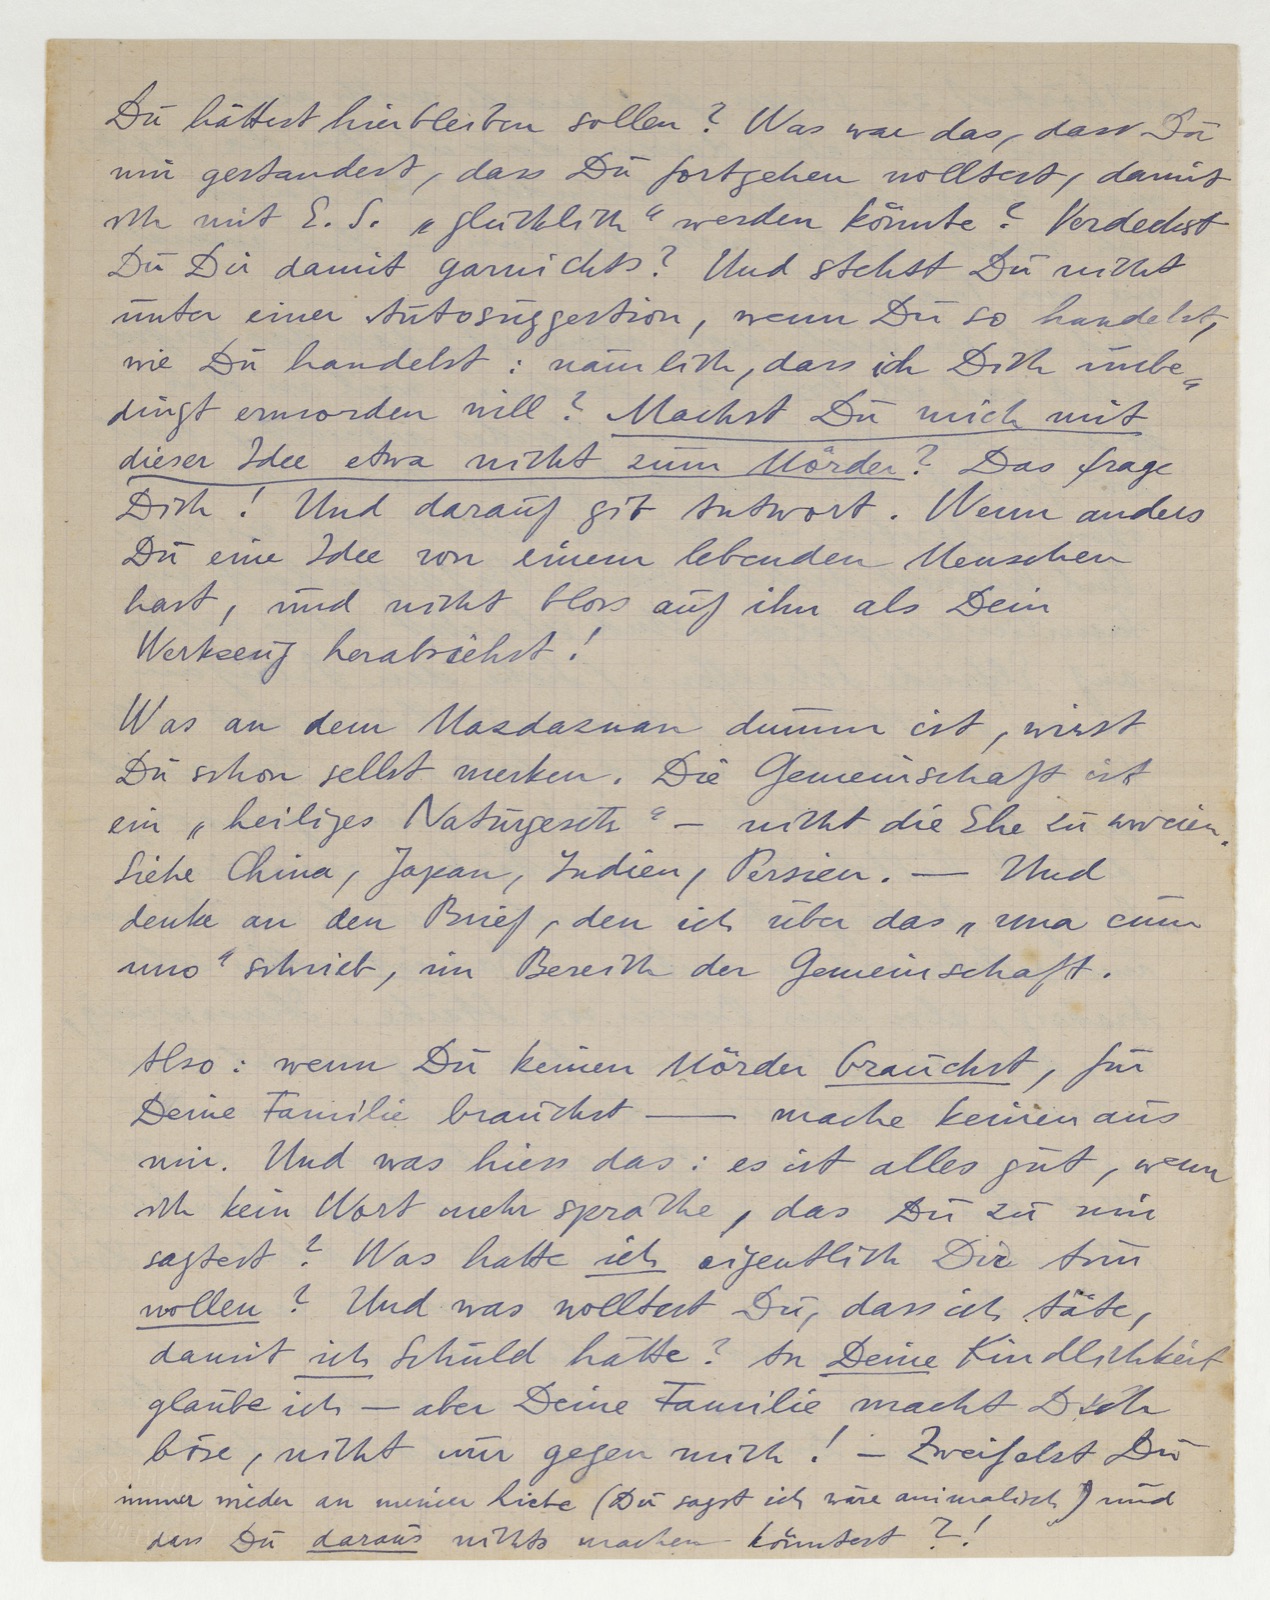 Du hättest hierbleiben sollen? Was war das, dass Du
mir gestandest, dass Du fortgehen wolltest, damit
ich mit E. S. „glücklich“ werden könnte? Verdeckst
Du Dir damit garnichts? Und stehst Du nicht
unter einer Autosuggestion, wenn Du so handelst,
wie Du handelst: nämlich, dass ich Dich unbe=
dingt ermorden will? Machst Du mich mit
dieser Idee etwa nicht zum Mörder? Das frage
Dich! Und darauf gib Antwort. Wenn anders
Du eine Idee von einem lebenden Menschen
hast, und nicht bloss auf ihn als Dein
Werkzeug herabsiehst!
Was an dem Masdasnan dumm ist, wirst
Du schon selbst merken. Die Gemeinschaft ist
ein „heiliges Naturgesetz“ – nicht die Ehe zu
Siehe China, Japan, Indien, Persien. — Und
denke an den Brief, den ich über das „una cum
uno“ schrieb, im Bereich der Gemeinschaft.
Also: wenn Du keinen Mörder brauchst, für
Deine Familie brauchst — mache keinen aus
mir. Und was hiess das: es ist alles gut, wenn
ich kein Wort mehr spräche, das Du zu mir
sagtest? Was hatte ich eigentlich Dir tun
wollen? Und was wolltest Du, dass ich täte,
damit ich Schuld hätte? An Deine Kindlichkeit
glaube ich – aber Deine Familie macht Dich
böse, nicht nur gegen mich! – Zweifelst Du
immer wieder an meiner Liebe (Du sagst ich wäre animalisch) und
dass Du daraus nichts machen könntest?!